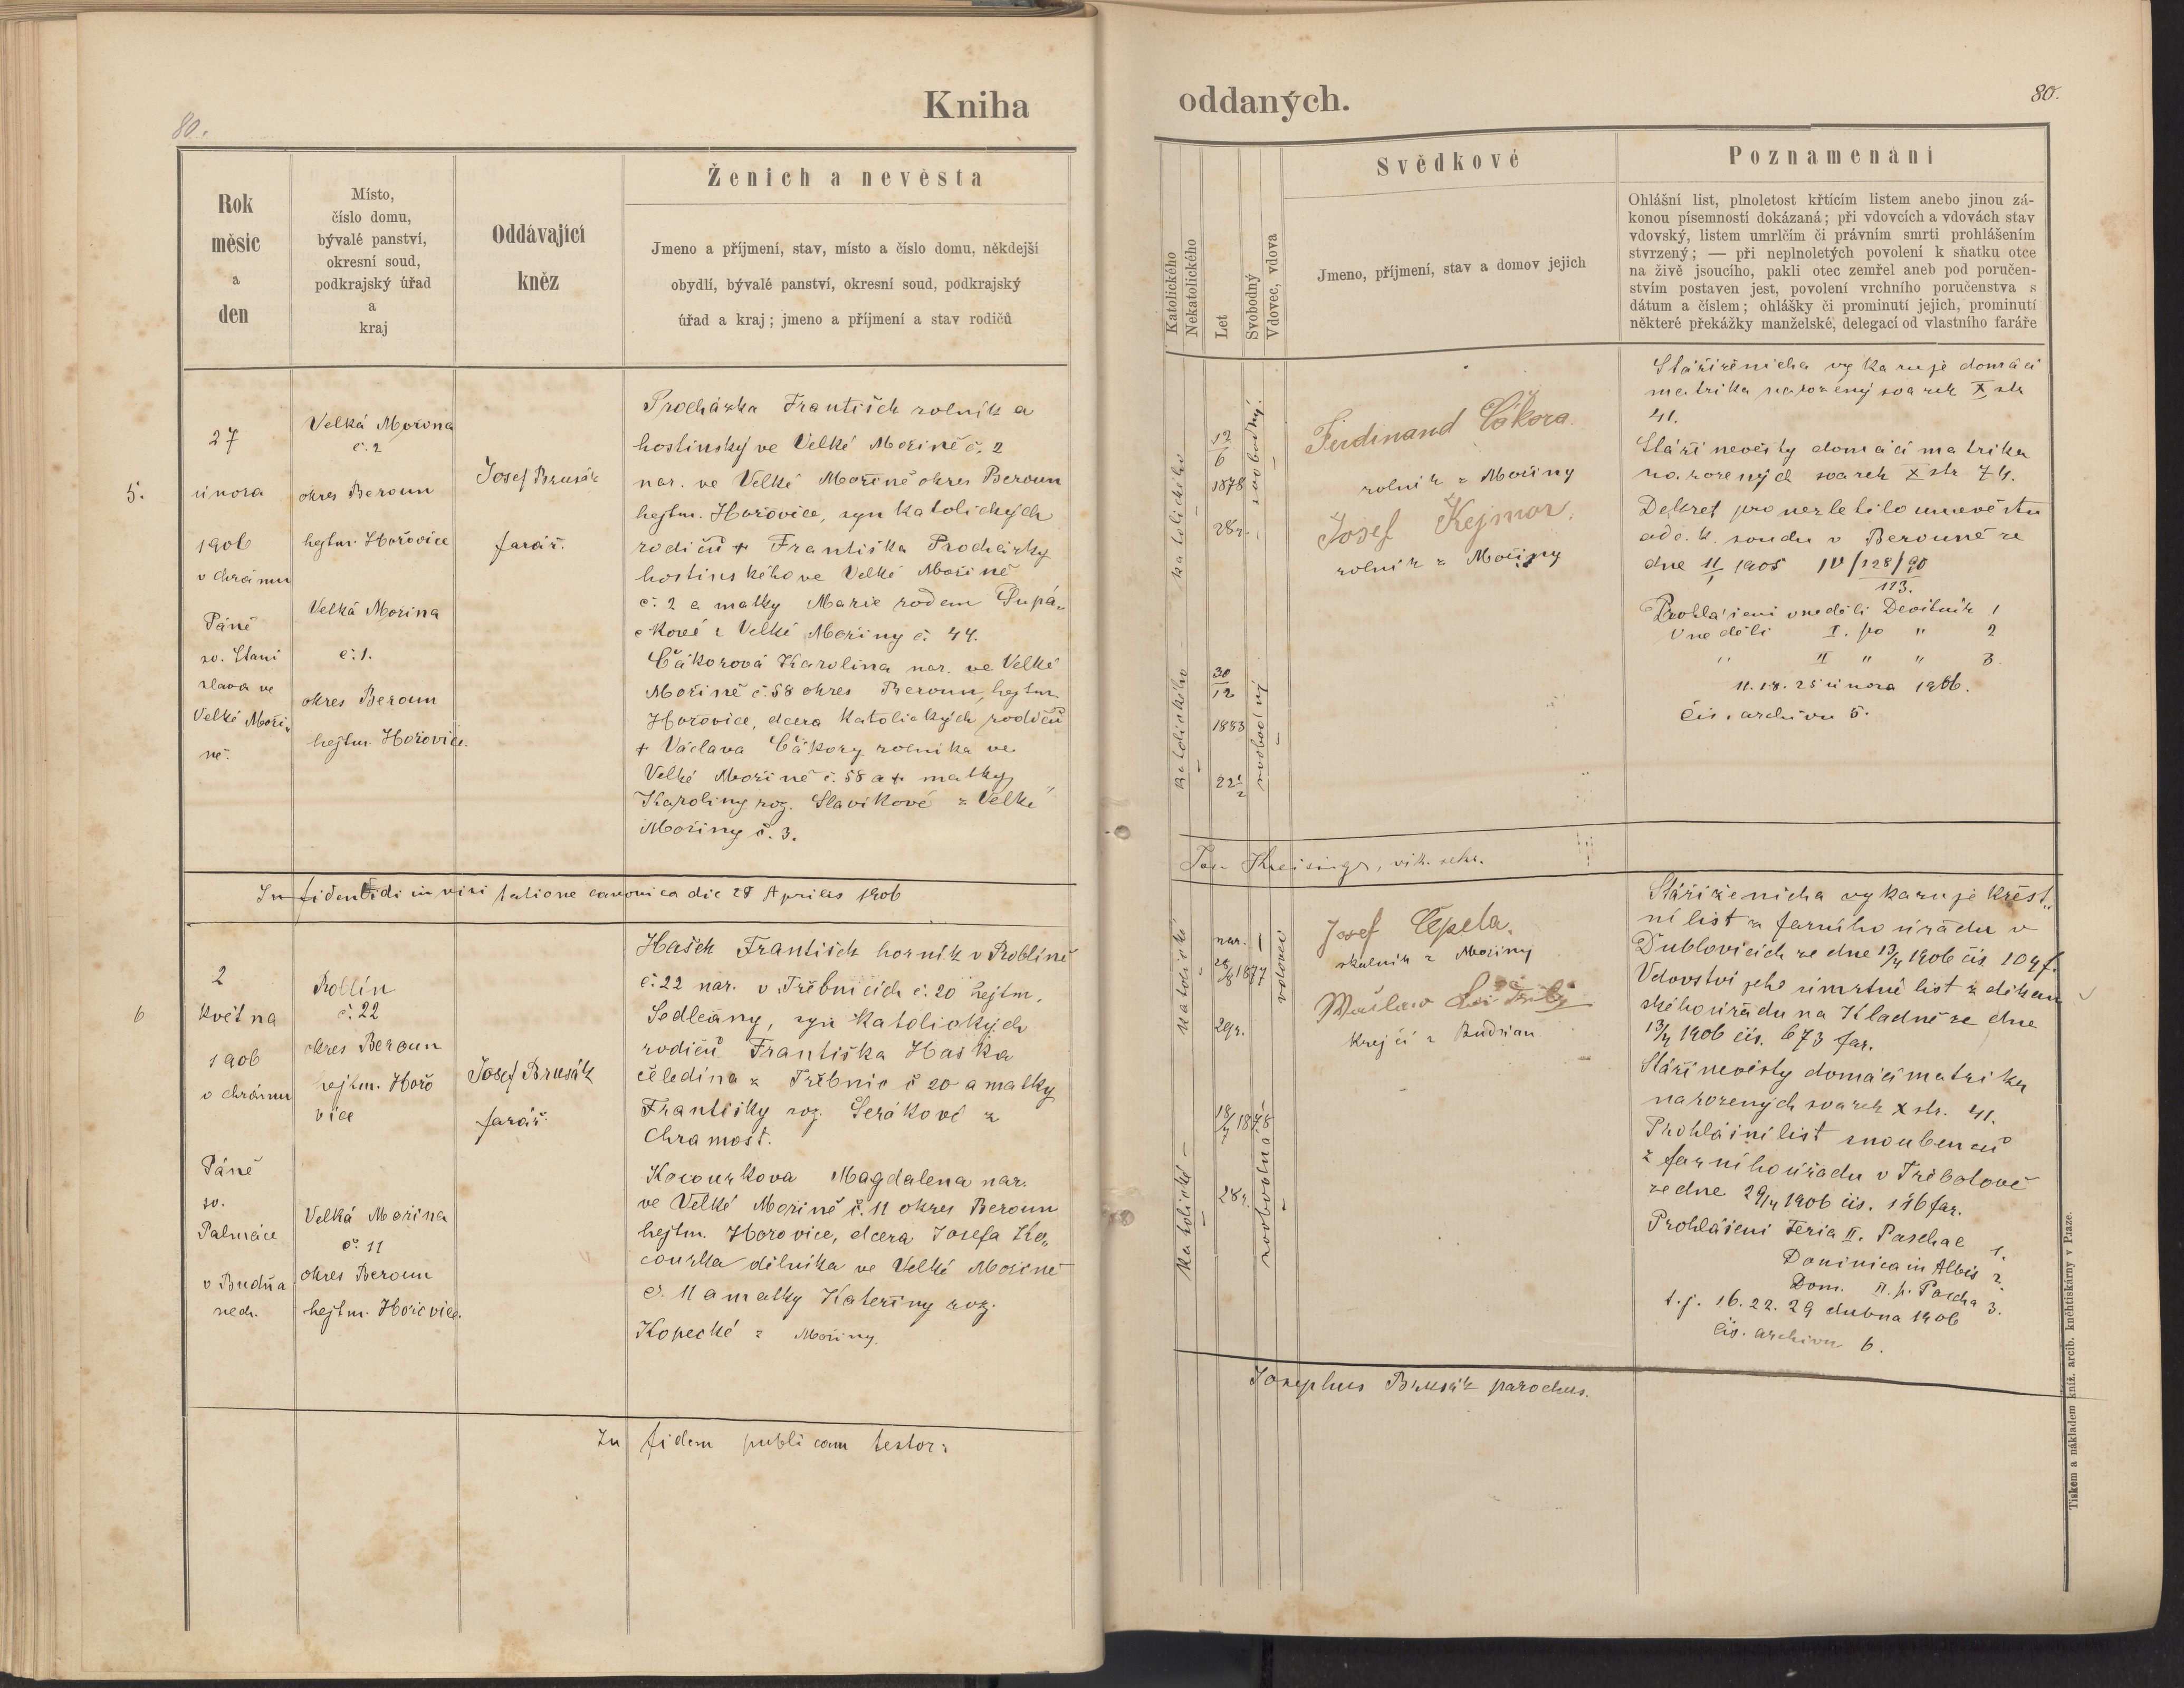 Kniha
80.
Rok
měsíc
a
den
Místo,
číslo domu,
bývalé panství,
okresní soud,
podkrajský úřad
a
kraj
Oddávající
kněz
Ženich a nevěsta
Jmeno a příjmení, stav, místo a číslo domu, někdejší
obydlí, bývalé panství, okresní soud, podkrajský
úřad a kraj; jmeno a příjmení a stav rodičů
5.
27
února
1906
v chrámu
Páně
sv. Stani
slava ve
Velké Moři„
ně.
Velká Mořina
č. 2
okres Beroun
hejtm. Hořovice
Velká Mořina
č. 1.
okres Beroun
hejtm. Hořovice.
Josef Brusák
farář.
Procházka František rolník a
hostinský ve Velké Mořině č. 2
nar. ve Velké Mořině okres Beroun
hejtm. Hořovice, syn katolických
rodičů + Františka Procházky
hostinského ve Velké Mořině
č. 2 a matky Marie rodem Pupá„
čkové z Velké Mořiny č. 44.
Čákorová Karolina nar. ve Velké
Mořině č. 58 okres Beroun, hejtm.
Hořovice, dcera katolických rodičů
+ Václava Čákory rolníka ve
Velké Mořině č. 58 a + matky
Karoliny roz. Slavíkové z Velké
Mořiny č. 3.
In fidem vidi in visi tatione canonica die 28 Aprilis 1906
6
2
května
1906
v chrámu
Páně
sv.
Palmácie
v Budňa
nech.
Roblín
č. 22
okres Beroun
hejtm. Hořo
vice
Velká Mořina
č. 11
okres Beroun
hejtm. Hořovice.
Josef Brusák
farář.
Hašek František horník v Roblíně
č. 22 nar. v Třebnicích č. 20 hejtm.
Sedlčany, syn katolických
rodičů Františka Haška
čeledína z Třebnic č 20 a matky
Františky roz. Serákové z
Chramost.
Kocourkova Magdalena nar.
ve Velké Mořině č. 11 okres Beroun
hejtm. Horovice, dcera Josefa Ko„
courka dělníka ve Velké Mořině
č. 11 a matky Kateřiny roz.
Kopecké z Mořiny.
In fidem publicam testor:
oddaných.
80.
Katolického
Nekatolického
Let
Svobodný
Vdovec, vdova
Svědkové
Jmeno, příjmení, stav a domov jejich
Poznamenání
Ohlášní list, plnoletost křtícím listem anebo jinou zá-
konou písemností dokázaná; při vdovcích a vdovách stav
vdovský, listem umrlčím či právním smrti prohlášením
stvrzený; — při neplnoletých povolení k sňatku otce
na živě jsoucího, pakli otec zemřel aneb pod poručen-
stvím postaven jest, povolení vrchního poručenstva s
dátum a číslem; ohlášky či prominutí jejich, prominutí
některé překážky manželské, delegací od vlastního faráře
katolického
12/6
1878
28 r.
svobodný.
katolického
30/12
1883
22 1/2
svobodný
Ferdinand Čákora.
rolník z Mořiny
Josef Kejmar.
rolník z Mořiny
Stáří ženicha vykazuje domácí
matrika narozený svazek X str
41.
Stáří nevěsty domácí matrika
narozených svazek X str 74.
Dekret pro nezletilou nevěstu
od c. k. soudu v Berouně ze
dne 11/1 1905 IV/128/90
113.
Prohlášení v neděli Devítník 1
V neděli I. po " 2
" II " " 3.
11. 18. 25 února 1906.
čís. archivu 5.
Jos. Kreisinger, vik. sekr.
katolické
nar.
28/8 1877
29 r.
vdovec
katolické
18/7 1878
28 r.
svobodná
Josef Cepela.
skalník z Mořiny
krejčí z Budňan
Stáří ženicha vykazuje křest„
ní list z farního úřadu v
Dublovicích ze dne 13/4 1906 čís. 104 f.
Vdovství jeho úmrtní list z děkan
ského úřadu na Kladně ze dne
13/4 1906 čís. 673 far.
Stáří nevěsty domácí matrika
narozených svazek X str. 41.
Prohlášní list snoubenců
z farního úřadu v Třebotově
ze dne 29/4 1906 čís. 186 far.
Prohlášení Feria II. Paschae 1.
Dominica in Albis 2.
Dom. II. p. Pascha 3.
t. j. 16. 22. 29 dubna 1906
čís. archivu 6.
Josephus Brusák parochus.
Tiskem a nákladem kníž. arcib. kněhtiskárny v Praze.